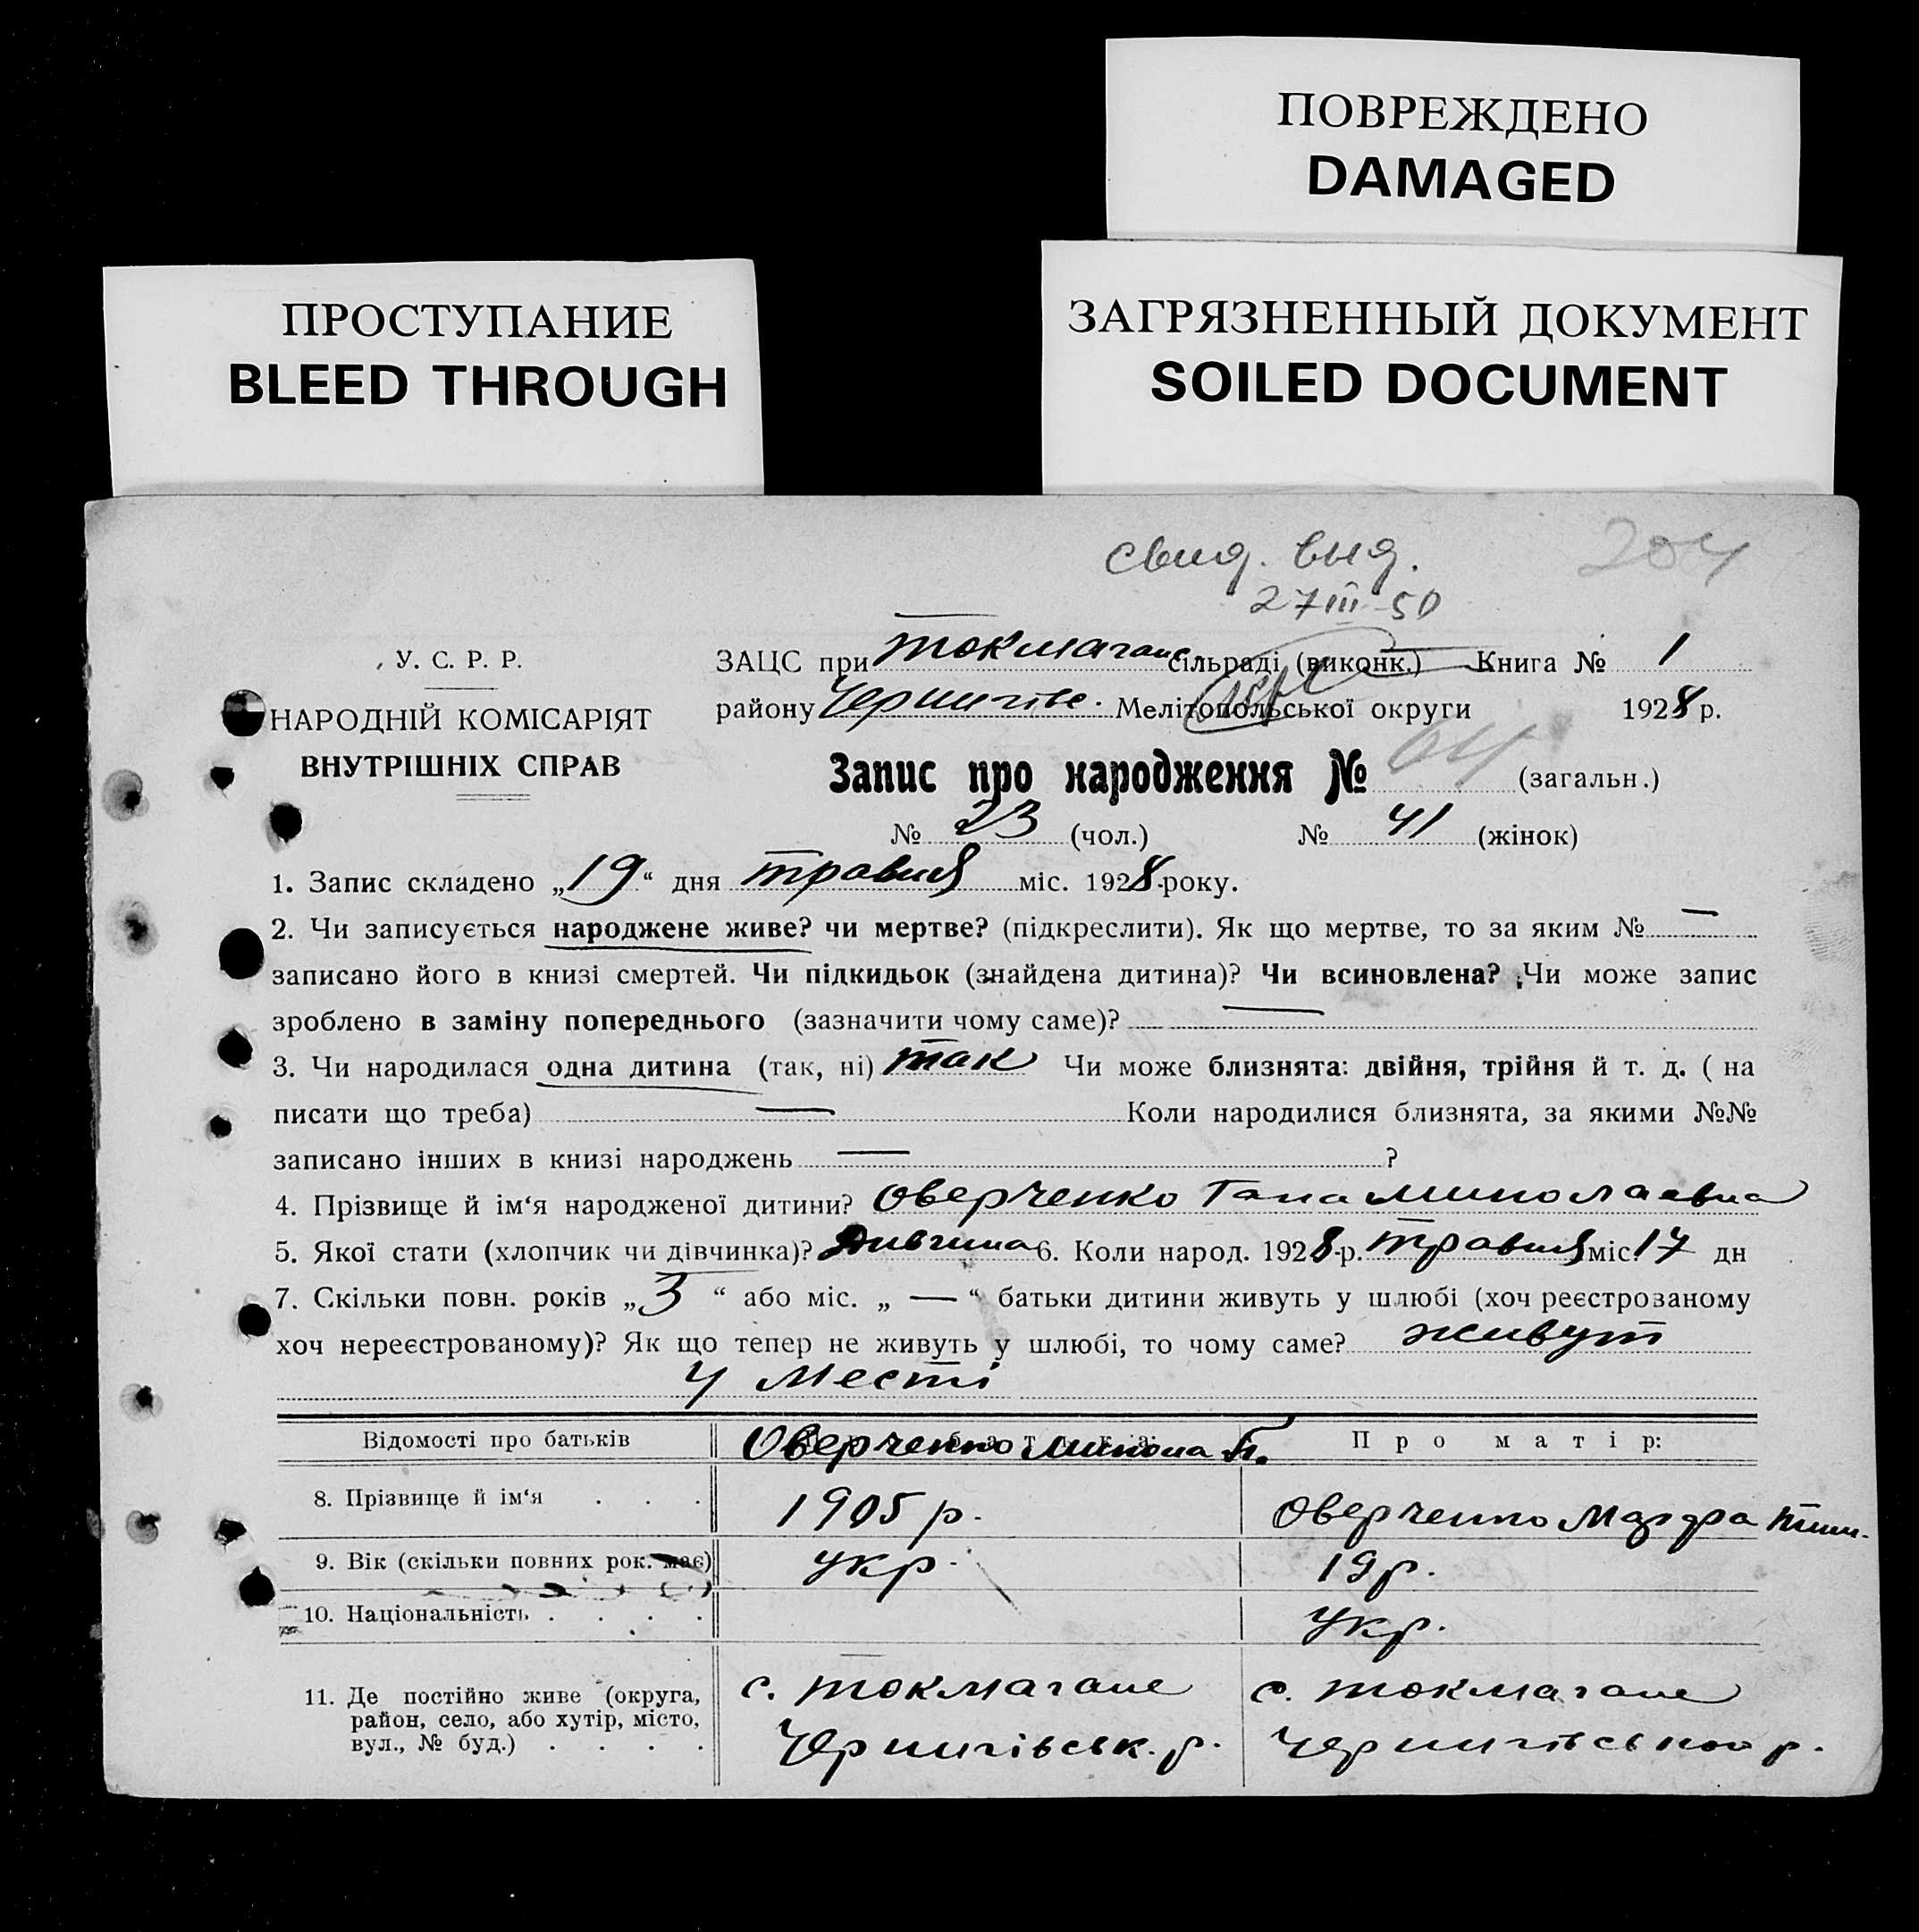 ПОВРЕЖДЕНО
DAMAGED
ПРОСТУПАНИЕ
BLEED THROUGH
ЗАГРЯЗНЕННЫЙ ДОКУМЕНТ
SOILED DOCUMENT
свид. выд. 204
27 III-50
У. С. Р. Р.
НАРОДНІЙ КОМІСАРІЯТ
ВНУТРІШНІХ СПРАВ
ЗАЦС при Токмачанс сільраді (виконк.) Книга № 1
району Чернигівс. Мелітопольської округи 1928 р.
Запис про народження № 64 (загальн.)
№ 23 (чол.) № 41 (жінок)
1. Запис складено „19“ дня травня міс. 1928 року.
2. Чи записується народжене живе? чи мертве? (підкреслити). Як що мертве, то за яким № —
записано його в книзі смертей. Чи підкидьок (знайдена дитина)? Чи всиновлена? Чи може запис
зроблено в заміну попереднього (зазначити чому саме)? —
3. Чи народилася одна дитина (так, ні) так Чи може близнята: двійня, трійня й т. д. ( на
писати що треба) — Коли народилися близнята, за якими №№
записано інших в книзі народжень — ?
4. Прізвище й ім‘я народженої дитини? Оверченко Гана Миколаевна
5. Якої стати (хлопчик чи дівчинка)? Дивчина 6. Коли народ. 1928 р. травня міс. 17 дн
7. Скільки повн. років „3“ або міс. „—“ батьки дитини живуть у шлюбі (хоч реєстрованому
хоч нереєстрованому)? Як що тепер не живуть у шлюбі, то чому саме? живут
у Месті
Відомості про батьків Оверченко Микола П. Про матір:
8. Прізвище й ім‘я . . . 1905 р. Оверченко Тим.
9. Вік (скільки повних рок. має) укр. 19 р.
10. Національність . . . . укр.
11. Де постійно живе (округа,
район, село, або хутір, місто,
вул., № буд.) . . . .
с. Токмачане с. Токмачане
Чернигівськ. р. Чернигівського р.